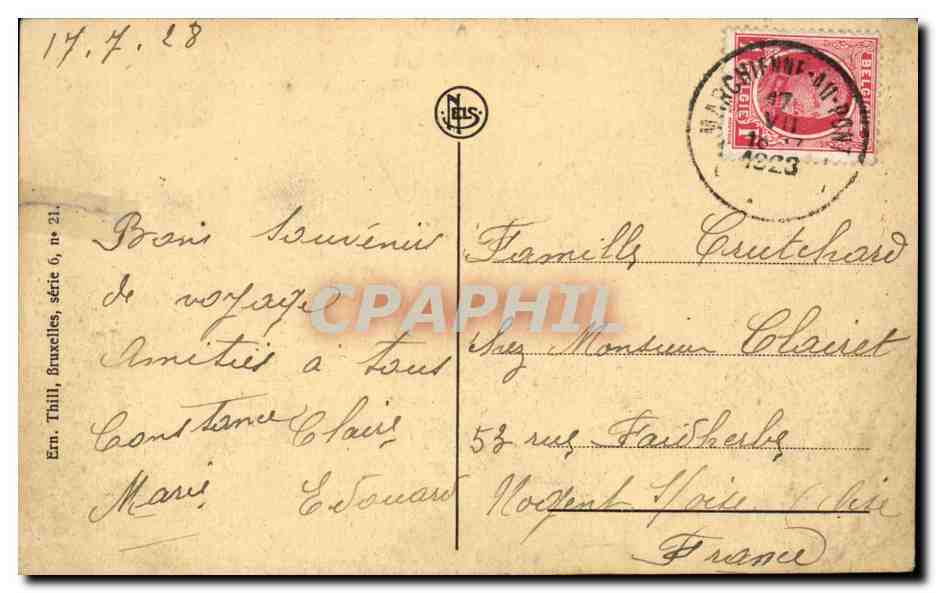 17.7.28
NELS
MARCHIENNE-AU-PONT
17
VII
1923
BELGIE
BELGIQUE
1F
Ern. Thill, Bruxelles, série 6, n° 21.
Bons Souvenirs
de voyage
Amitiés à tous
Constance Claire
Marie Edouard
Famille Crutchard
chez Monsieur Clairet
53 rue Faidherbe
Nogent s/Oise Oise
France
CPAPHIL